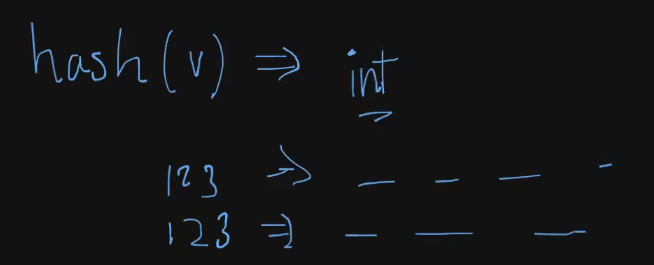 hash(v) ⇒ int
123 → — — — -
123 ⇒ — — —